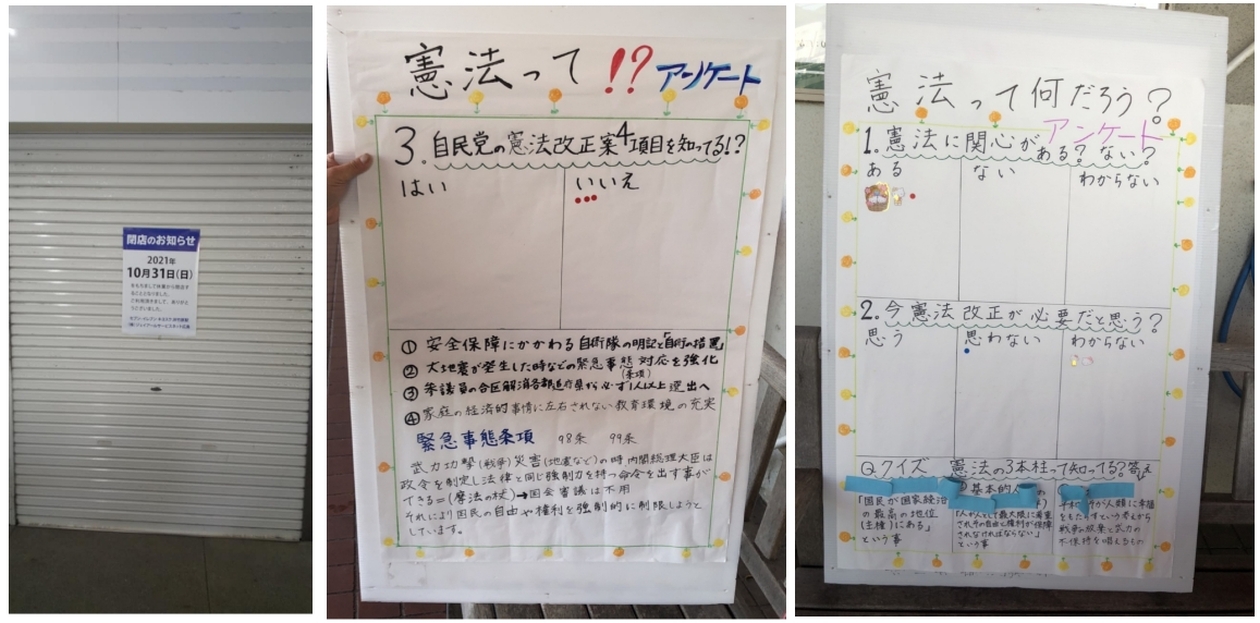 閉店のお知らせ
2021年
10月31日(日)
憲法って!?アンケート
3.自民党の憲法改正案4項目を知ってる!?
はい
いいえ
① 安全保障にかかわる自衛隊の明記と「自衛の措置」
② 大地震が発生した時などの緊急事態対応を強化
(条項)
③ 参議員の合区解消各都道府県から必ず1人以上選出へ
④ 家庭の経済的事情に左右されない教育環境の充実
緊急事態条項 98条 99条
武力攻撃(戦争)災害(地震など)の時内閣総理大臣は
政令を制定し法律と同じ強制力を持つ命令を出す事が
できる=(魔法の杖)→国会審議は不用
それにより国民の自由や権利を強制的に制限しようと
しています。
憲法って何だろう?
アンケート
1.憲法に関心がある?ない?
ある
ない
わからない
2.今憲法改正が必要だと思う?
思う
思わない
わからない
Qクイズ 憲法の3本柱って知ってる?答え
基本的人
「国民が国家経治
の最高の地位
(主権)にある」
という事
「人が人として最大限に尊重
されその自由と権利が保障
されなければならない」
という事
が人類に幸福
をもたらすという考えから
戦争の放棄と武力の
不保持を唱えるもの